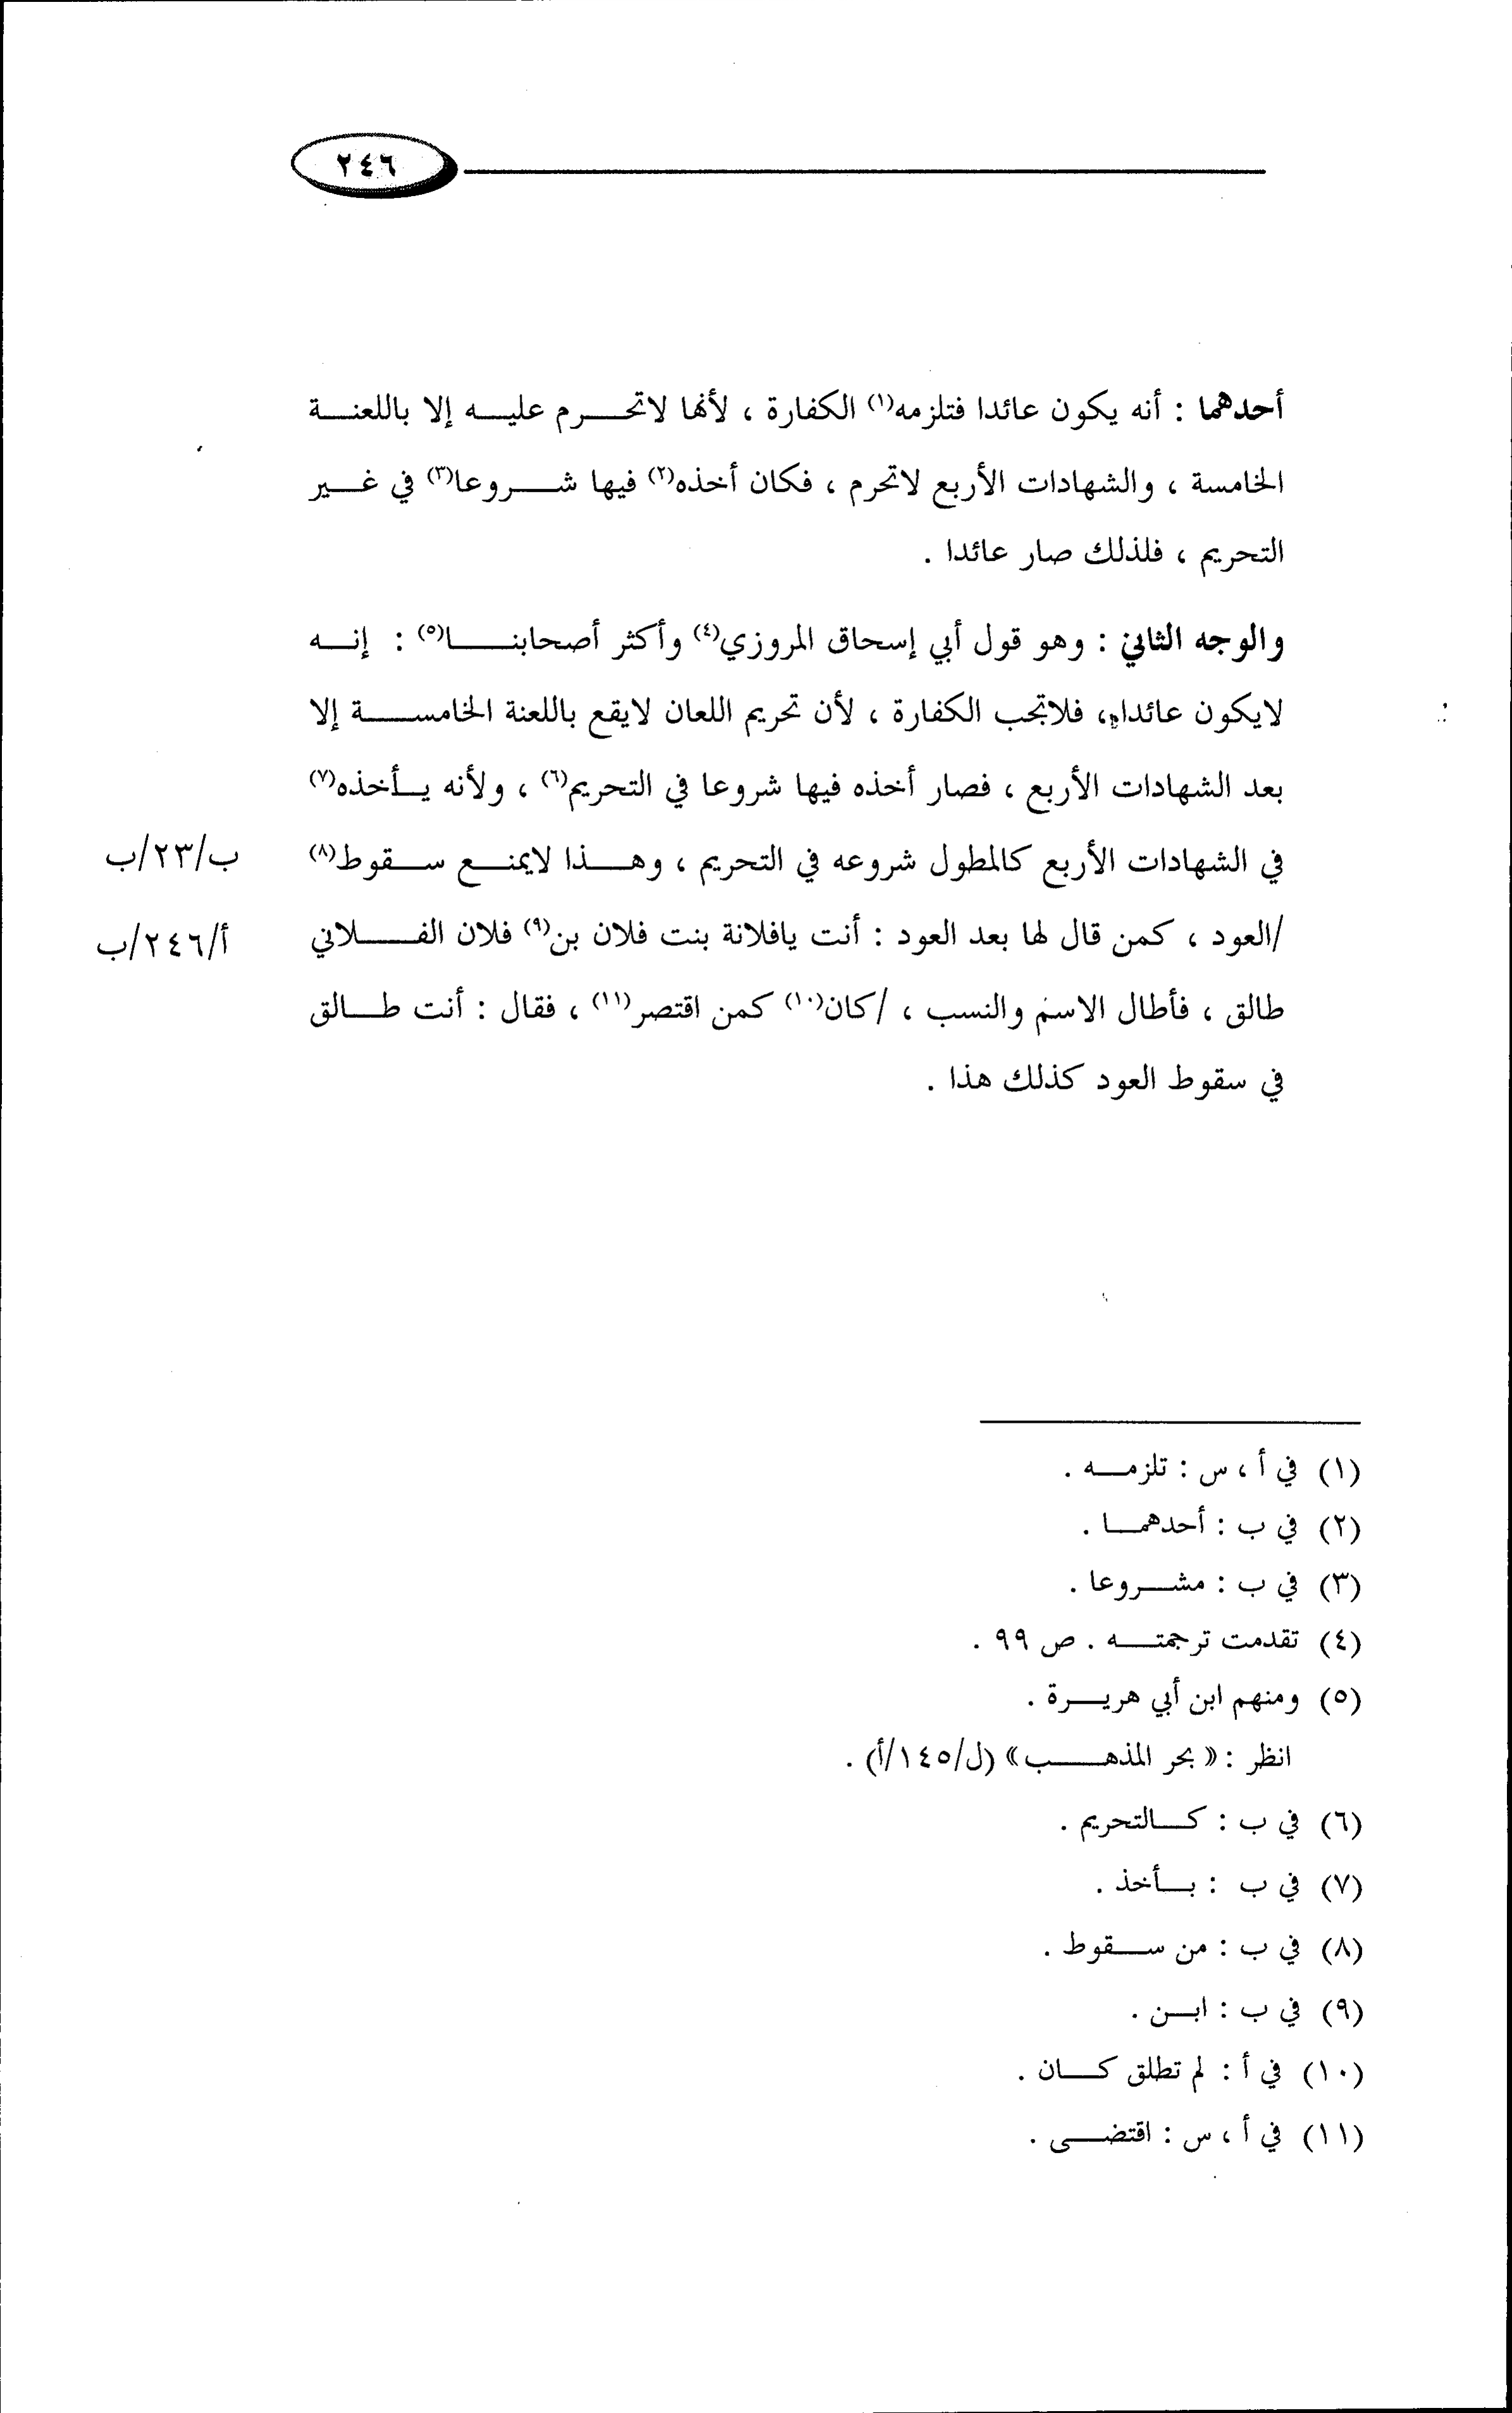 ٢٤٦
أحدهما : أنه يكون عائدا فتلزمه(١) الكفارة ، لأنها لاتحرم عليه إلا باللعنة
الخامسة ، والشهادات الأربع لاتحرم ، فكان أخذه(٢) فيها شروعا(٣) في غير
التحريم ، فلذلك صار عائدا .
والوجه الثاني : وهو قول أبي إسحاق المروزي(٤) وأكثر أصحابنا(٥) : إنه
لايكون عائدا، فلاتجب الكفارة ، لأن تحريم اللعان لايقع باللعنة الخامسة إلا
بعد الشهادات الأربع ، فصار أخذه فيها شروعا في التحريم(٦) ، ولأنه يأخذه(٧)
في الشهادات الأربع كالمطول شروعه في التحريم ، وهذا لايمنع سقوط(٨)
ب/٢٣/ب
/العود ، كمن قال لها بعد العود : أنت يافلانة بنت فلان بن(٩) فلان الفلاني
أ/٢٤٦/ب
طالق ، فأطال الاسم والنسب ، /كان(١٠) كمن اقتصر(١١) ، فقال : أنت طالق
في سقوط العود كذلك هذا .
(١) في أ ، س : تلزمه .
(٢) في ب : أحدهما .
(٣) في ب : مشروعا .
(٤) تقدمت ترجمته . ص ٩٩ .
(٥) ومنهم ابن أبي هريرة .
انظر : «بحر المذهب» (ل/١٤٥/أ) .
(٦) في ب : كالتحريم .
(٧) في ب : بأخذ .
(٨) في ب : من سقوط .
(٩) في ب : ابن .
(١٠) في أ : لم تطلق كان .
(١١) في أ ، س : اقتضى .